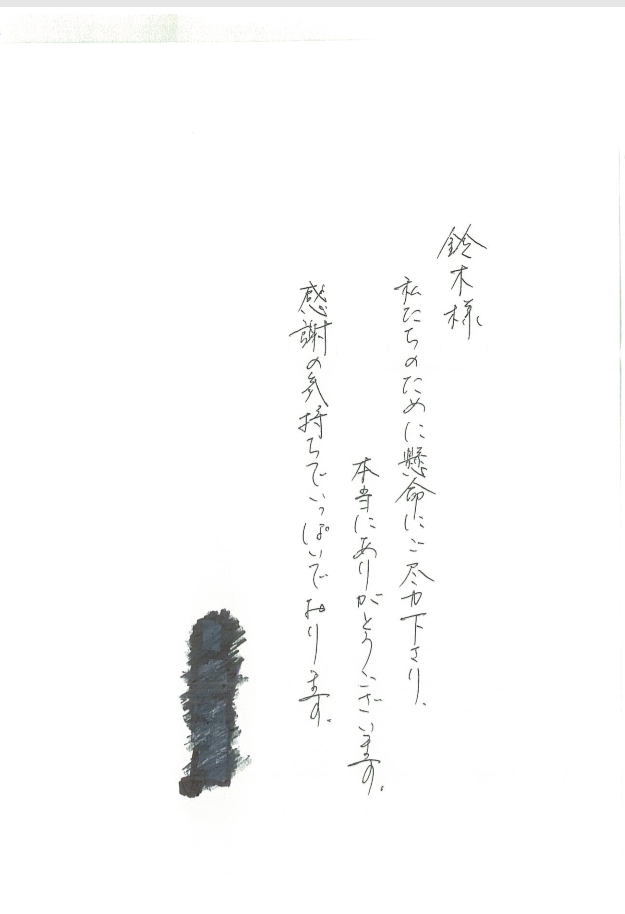 鈴木様
私たちのために懸命にご尽力下さり、
本当にありがとうございます。
感謝の気持ちでいっぱいでおります。